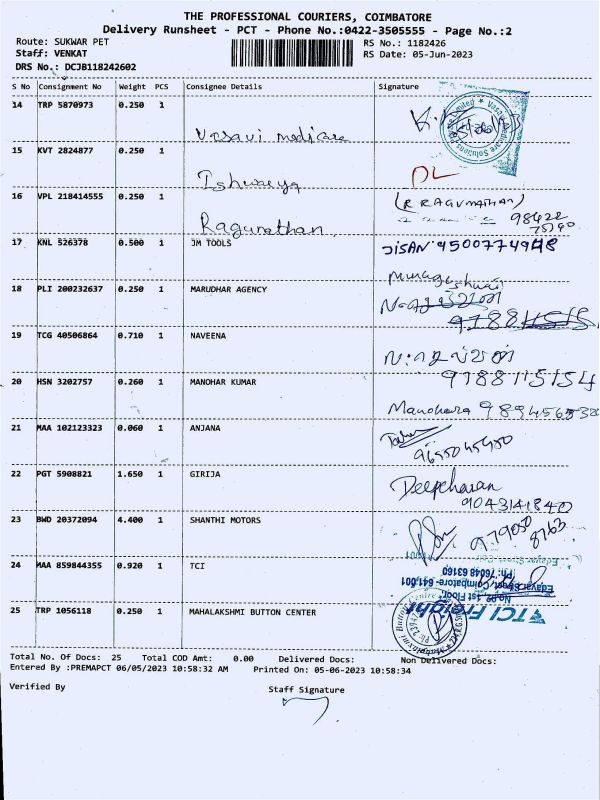 THE PROFESSIONAL COURIERS, COIMBATORE
Delivery Runsheet - PCT - Phone No.:0422-3505555 - Page No.:2
Route: SUKWAR PET RS No.: 1182426
Staff: VENKAT RS Date: 05-Jun-2023
DRS No.: DCJB118242602
S No Consignment No Weight PCS Consignee Details Signature
14 TRP 5870973 0.250 1 Vasavi medicare
15 KVT 2824877 0.250 1 Ishwarya
16 VPL 218414555 0.250 1 Ragunathan (R RAGUNATHAN) 98422
17 KNL 526378 0.500 1 JM TOOLS JISAN: 9500774948
18 PLI 200232637 0.250 1 MARUDHAR AGENCY Murugeshwari
19 TCG 40506864 0.710 1 NAVEENA
9788115154
20 HSN 3202757 0.260 1 MANOHAR KUMAR Manohara
21 MAA 102123323 0.060 1 ANJANA 9655045450
22 PGT 5908821 1.650 1 GIRIJA Deepcharan
9043141840
23 BWD 20372094 4.400 1 SHANTHI MOTORS 979050 8763
24 MAA 859844355 0.920 1 TCI
TCI Freight
1st Floor,
Coimbatore-641 001
Ph: 76048 63160
25 TRP 1056118 0.250 1 MAHALAKSHMI BUTTON CENTER
Total No. Of Docs: 25 Total COD Amt: 0.00 Delivered Docs: Non Delivered Docs:
Entered By :PREMAPCT 06/05/2023 10:58:32 AM Printed On: 05-06-2023 10:58:34
Verified By Staff Signature